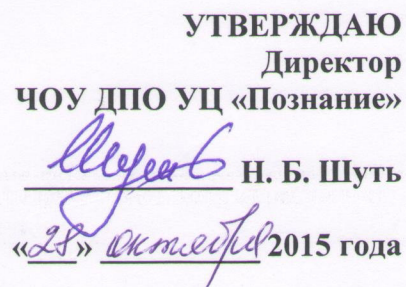 УТВЕРЖДАЮ
Директор
ЧОУ ДПО УЦ «Познание»
Н. Б. Шуть
«28» октября 2015 года